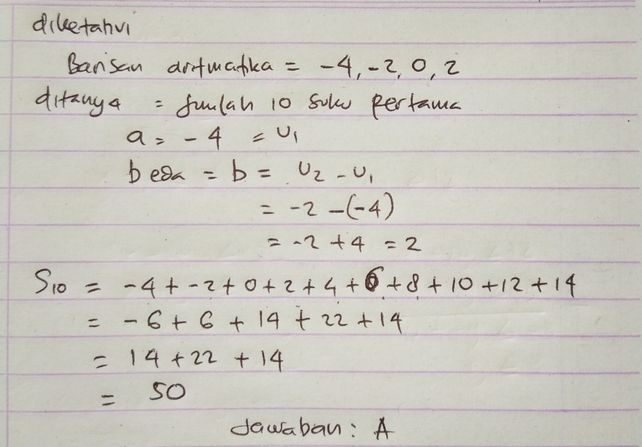 diketahui
Barisan aritmatika = -4, -2, 0, 2
ditanya = Jumlah 10 suku pertama
a = -4 = U₁
beda = b = U₂ - U₁
= -2 - (-4)
= -2 + 4 = 2
S₁₀ = -4 + -2 + 0 + 2 + 4 + 6 + 8 + 10 + 12 + 14
= -6 + 6 + 14 + 22 + 14
= 14 + 22 + 14
= 50
Jawaban : A